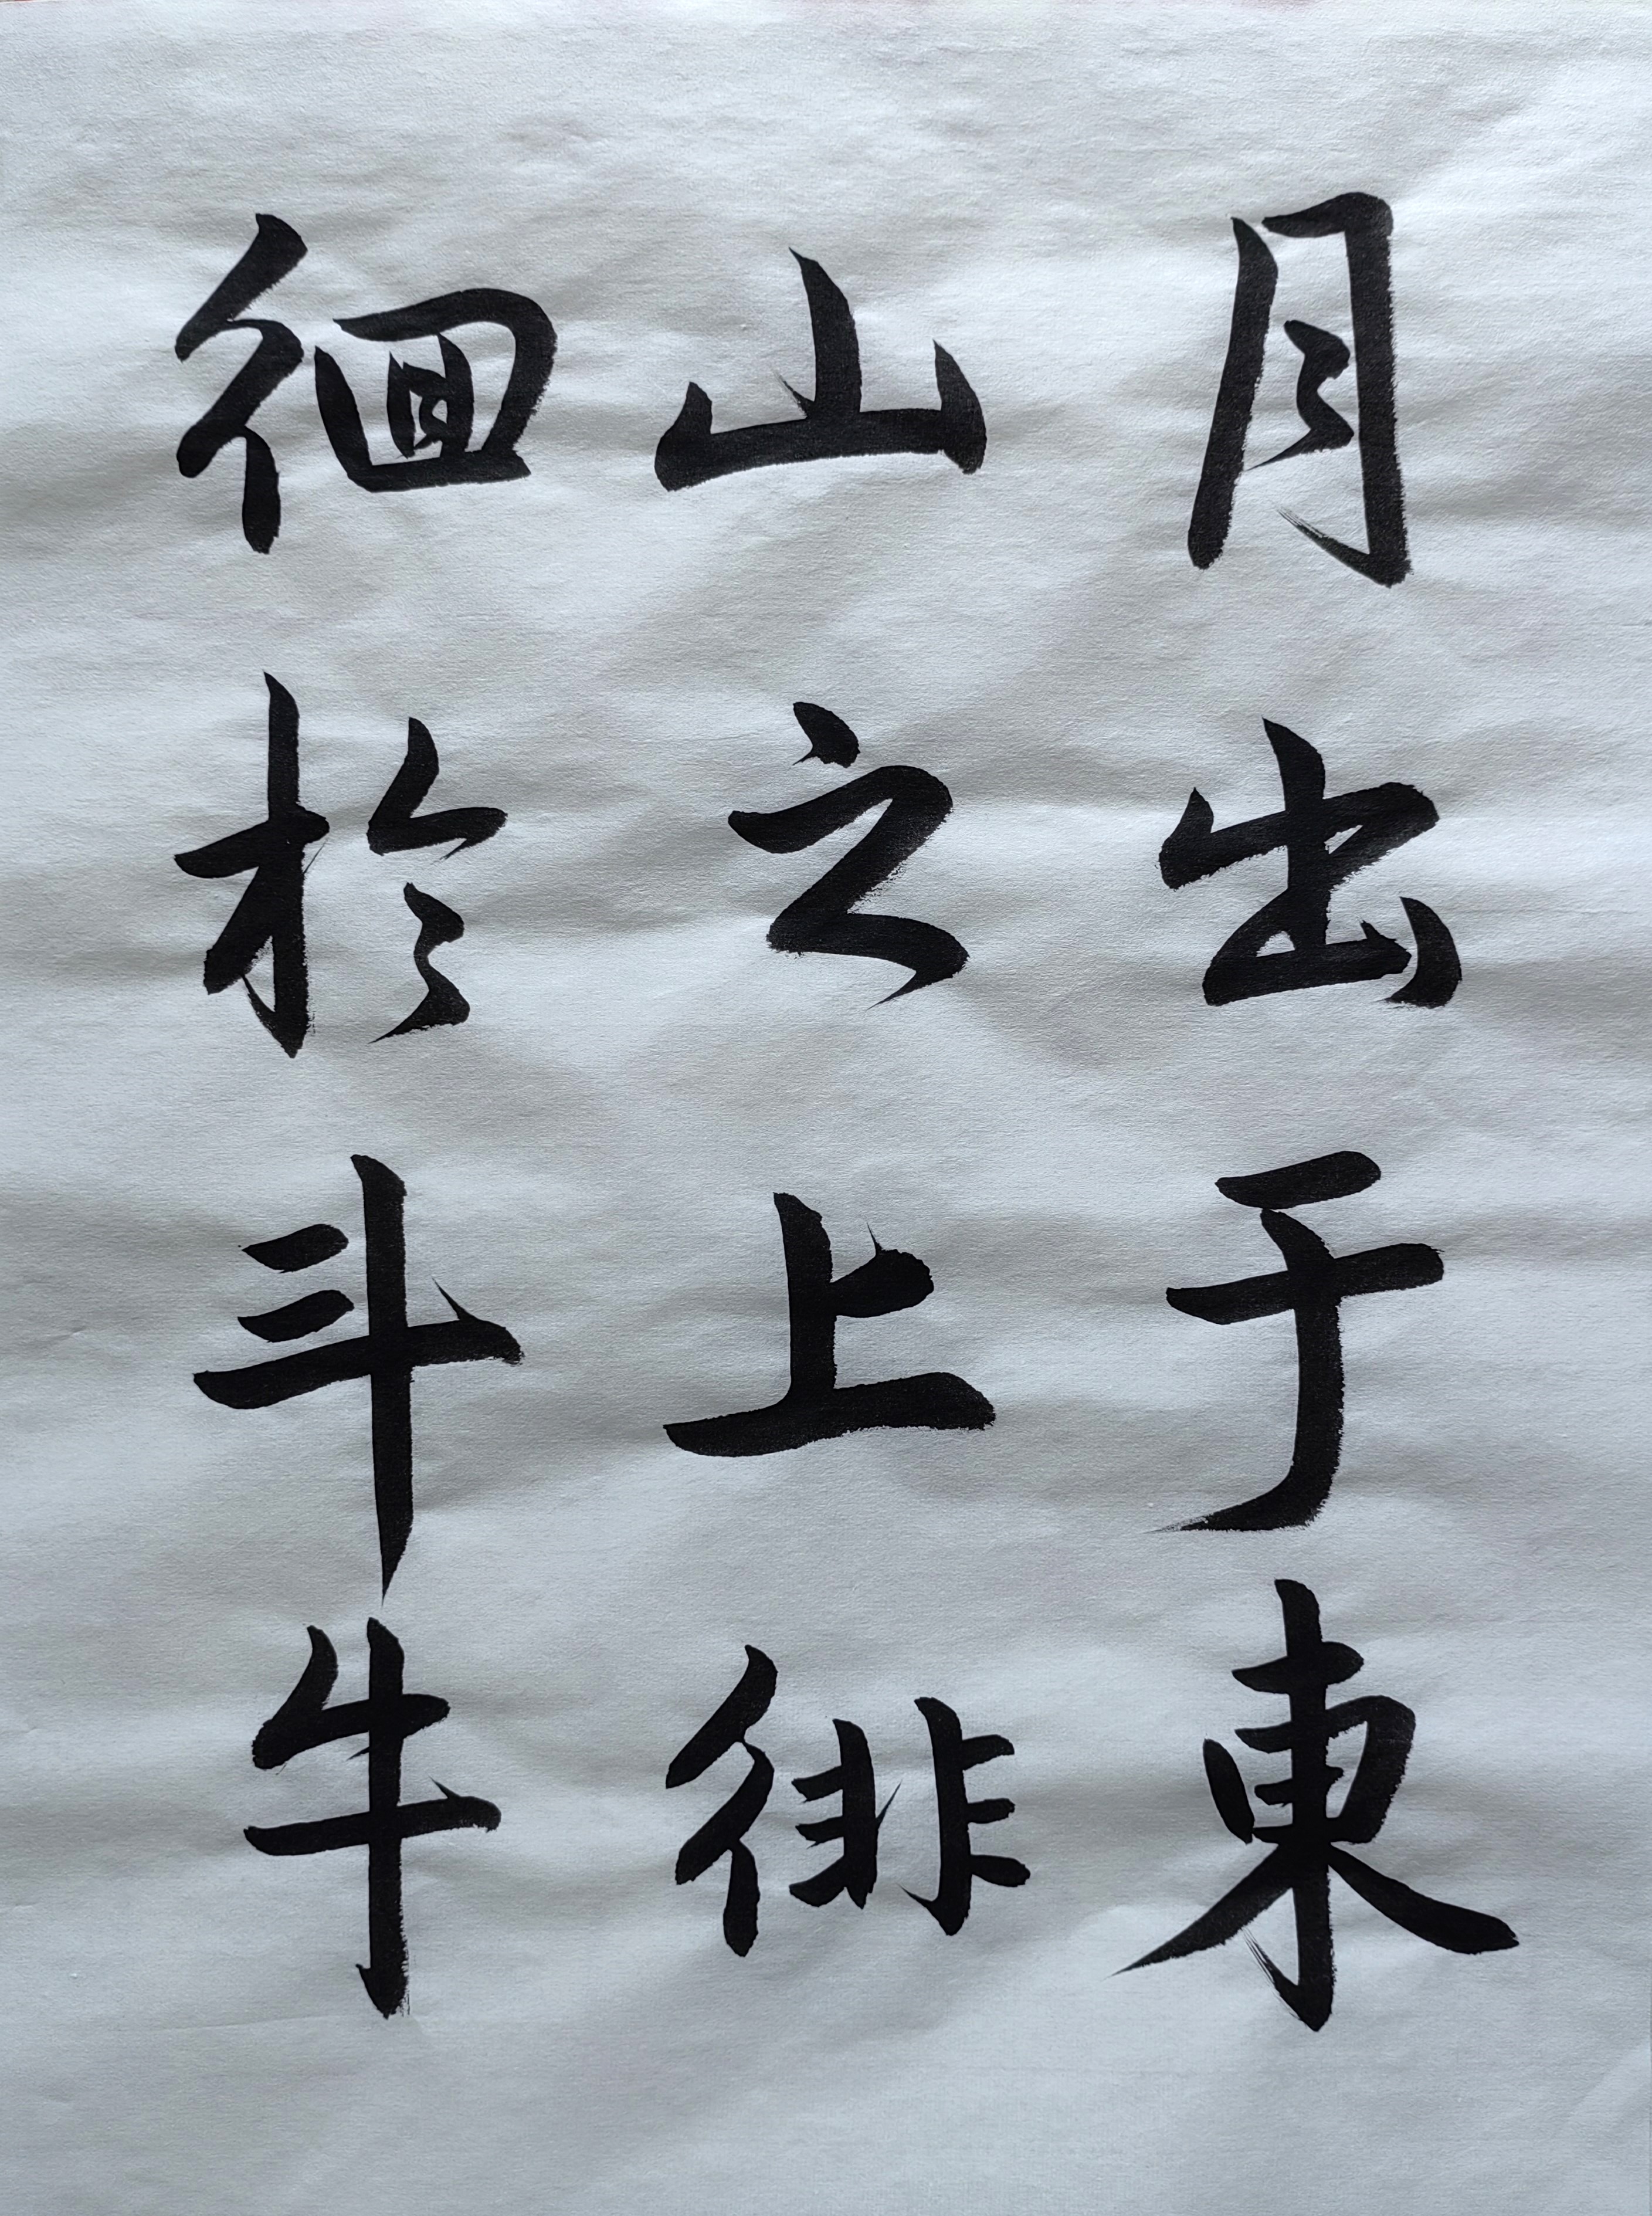 月出于東
山之上徘
徊於斗牛